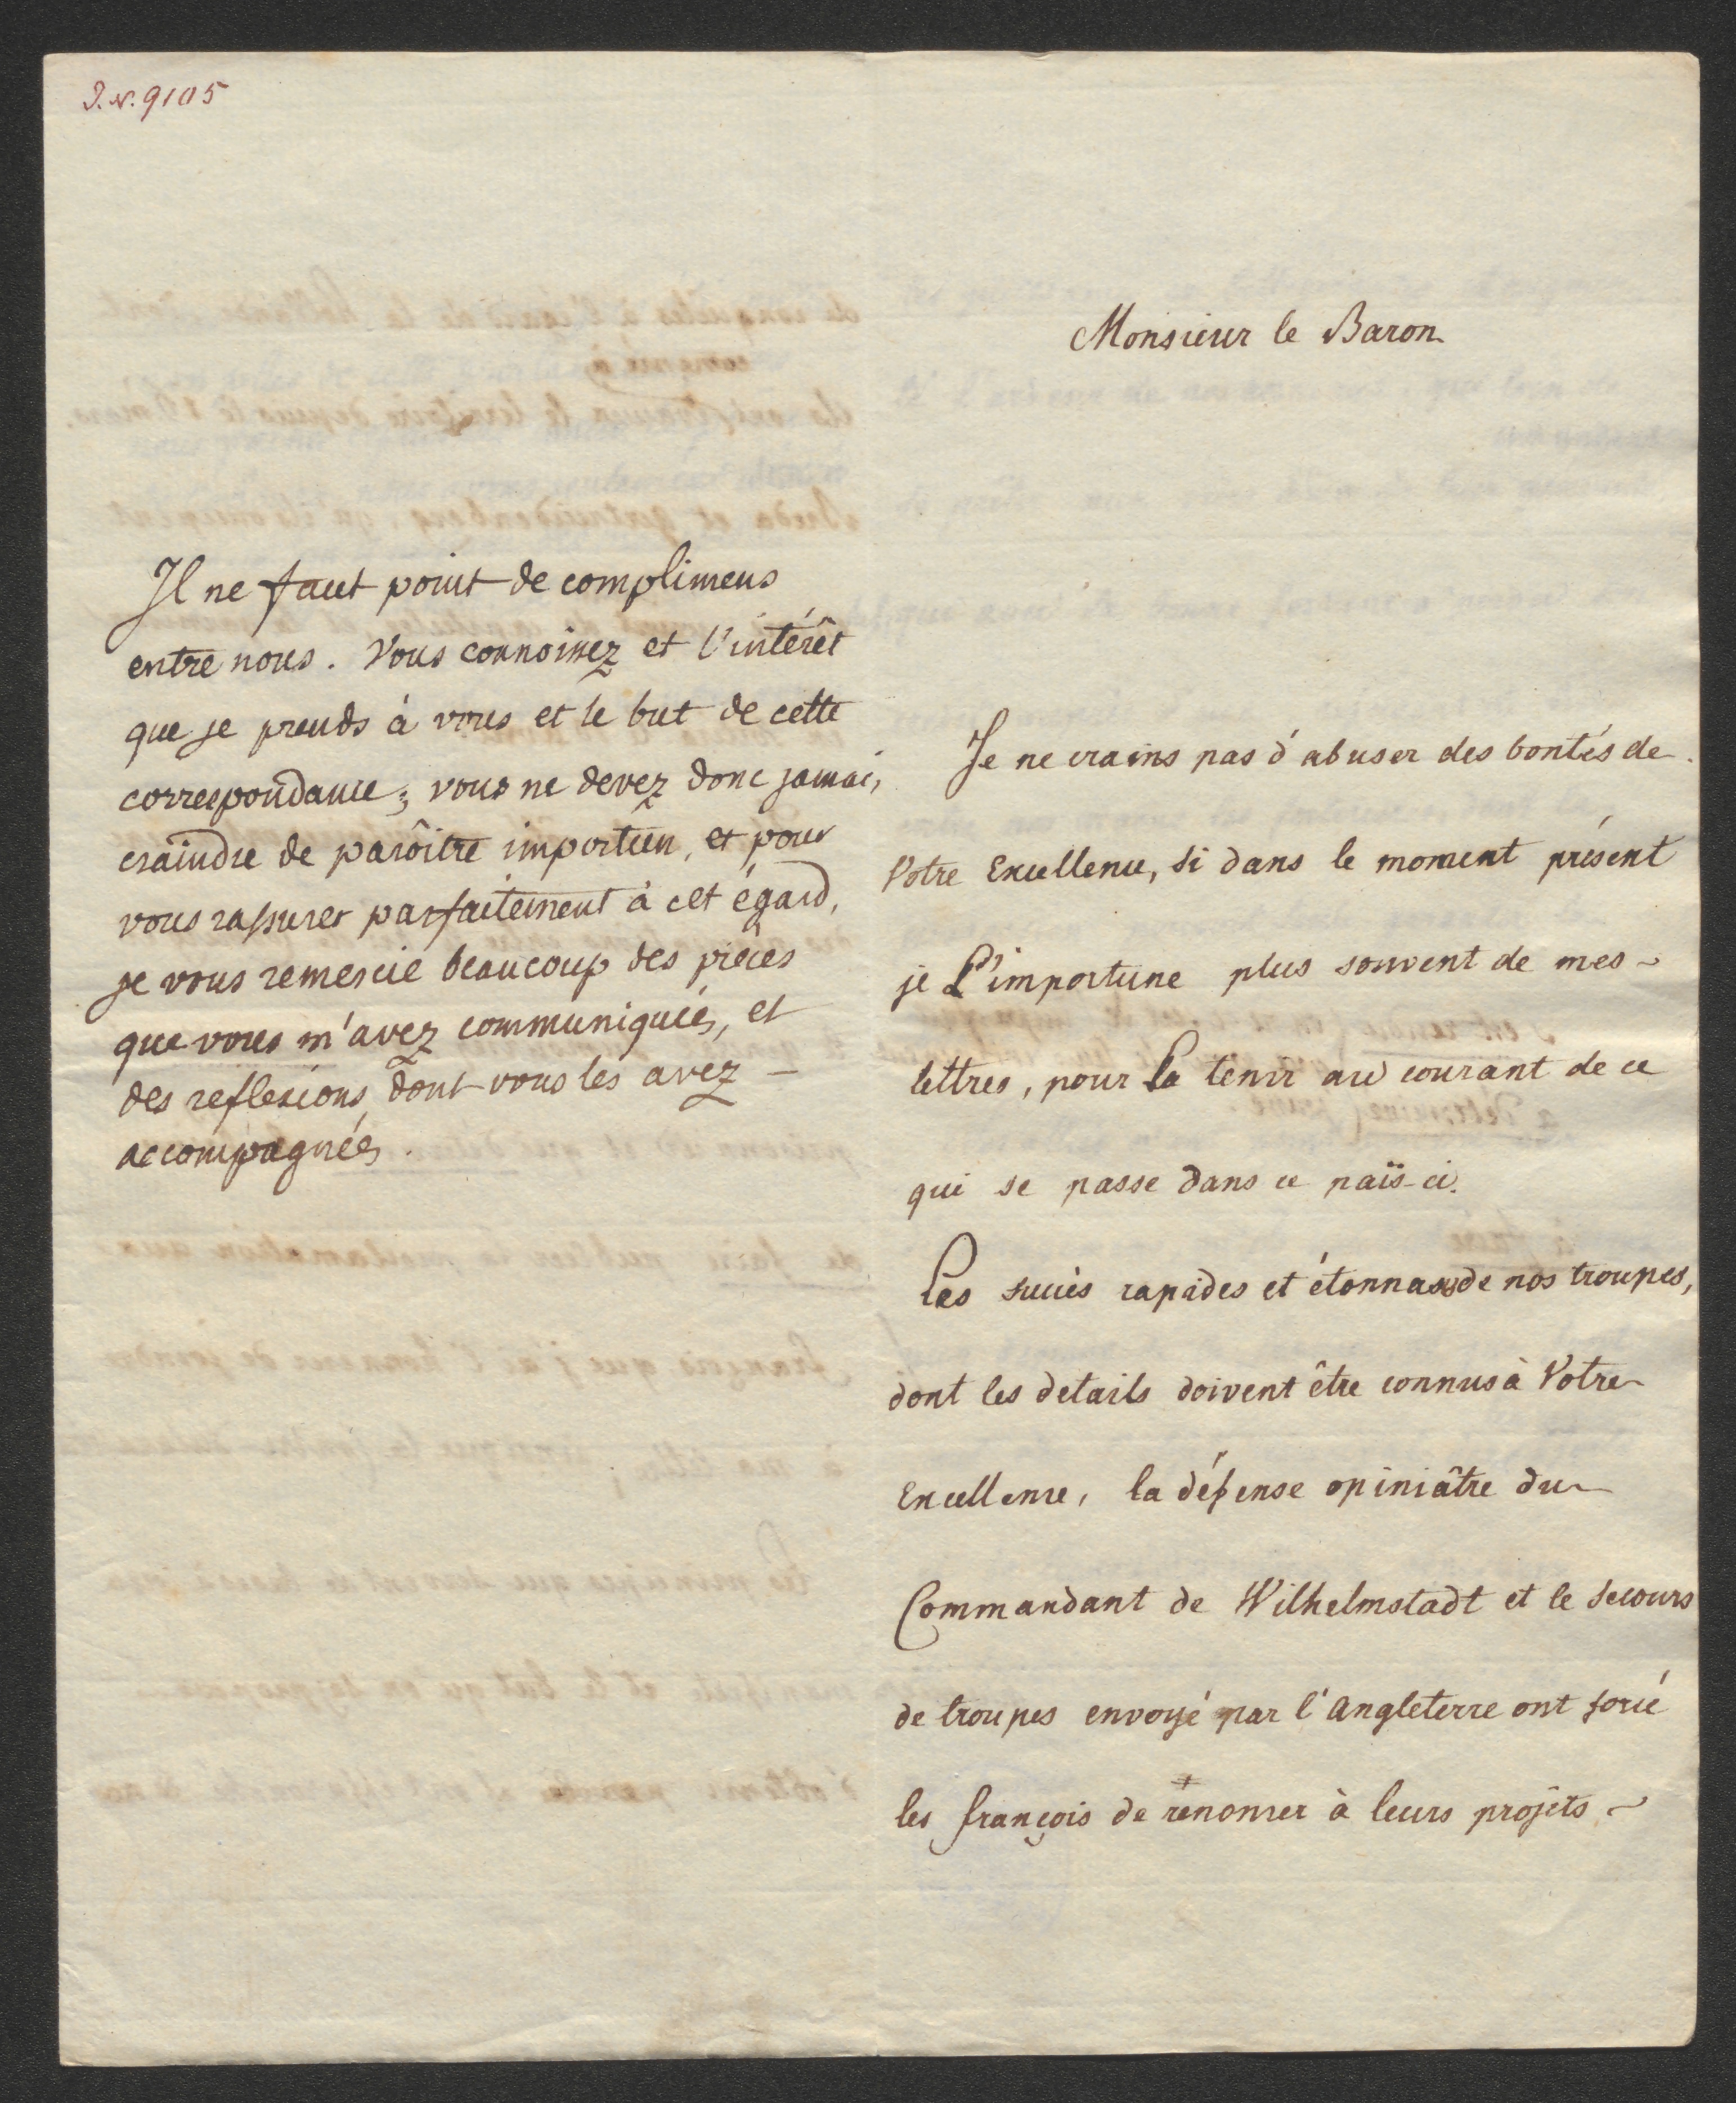 J.N. 9105
Il ne faut point de complimens
entre nous. Vous connoissez et l'intérêt
que je prends à vous et le but de cette
correspondance; vous ne devez donc jamais
craindre de parôitre importun, et pour
vous rassurer parfaitement à cet égard,
je vous remercie beaucoup des pièces
que vous m'avez communiquées, et
des reflexions, dont vous les avez –
accompagnées.
Monsieur le Baron
Je ne crains pas d'abuser des bontés de
Votre Excellence, si dans le moment présent
je L'importune plus souvent de mes
lettres, pour La tenir au courant de ce
qui se passe dans ce païs-ci.
Les succès rapides et étonnans de nos troupes,
dont les details doivent être connus à Votre
Excellence, la défense opiniâtre du
Commandant de Wilhelmstadt et le secours
de troupes envoyé par l'Angleterre ont forcé
les françois de renoncer à leurs projets